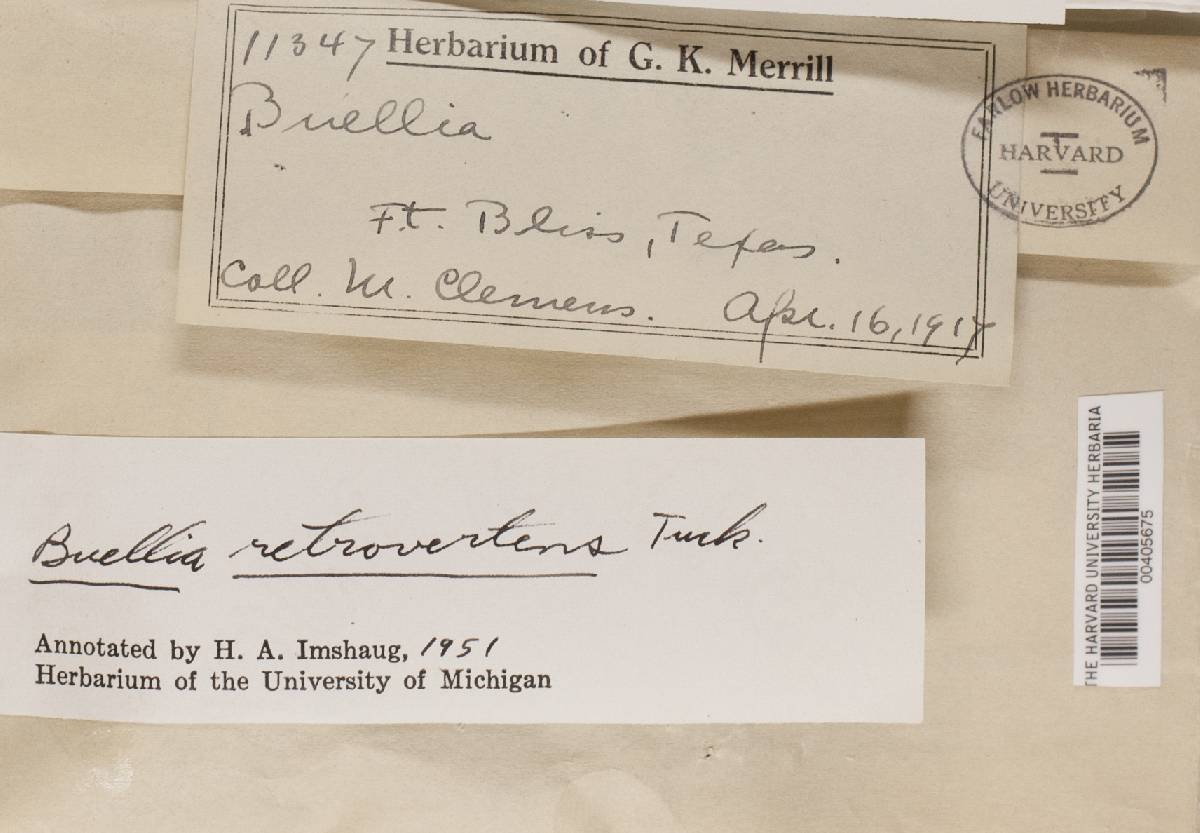 11347 Herbarium of G. K. Merrill
Buellia
Ft. Bliss, Texas.
Coll. M. Clemens. Apr. 16, 1917
FARLOW HERBARIUM
HARVARD
UNIVERSITY
Buellia retrovertens Tuck.
Annotated by H. A. Imshaug, 1951
Herbarium of the University of Michigan
THE HARVARD UNIVERSITY HERBARIA
00405675